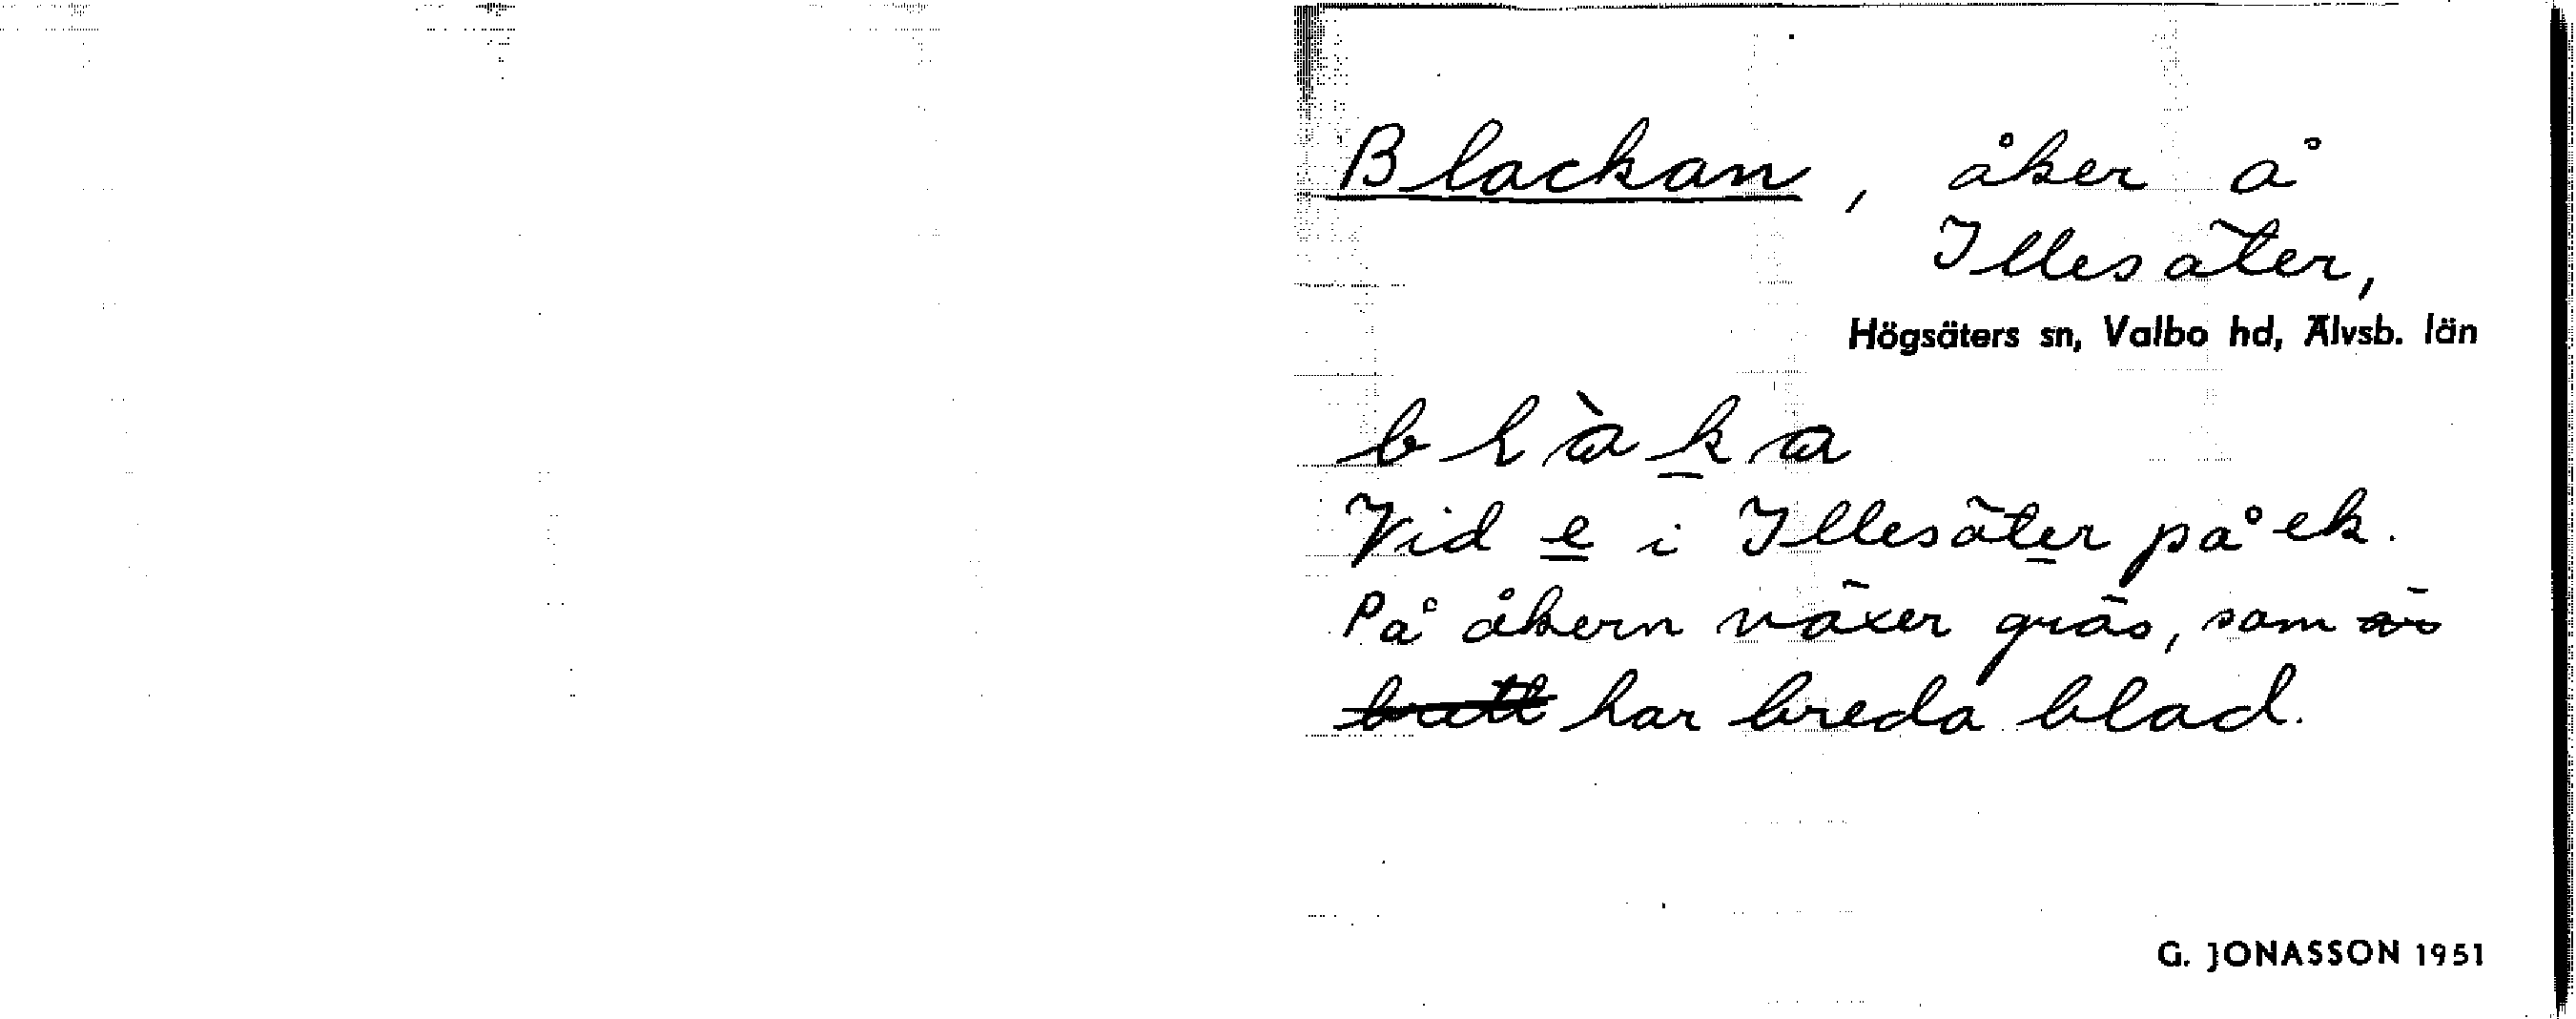 Blackan, åker å
Illesäter,
Högsäters sn, Valbo hd, Älvsb. län
blàka
Vid e i Illesäter på ek.
På åkern växer gräs, som är
brett har breda blad.
G. JONASSON 1951